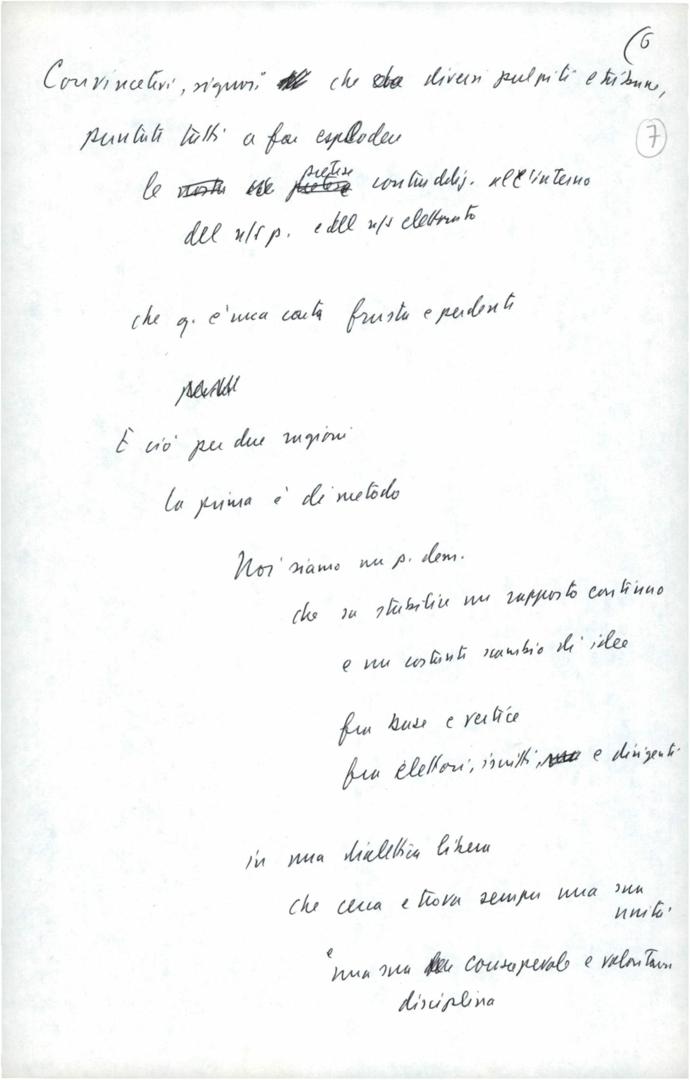 (6
7
Convincetevi, signori che da diversi pulpiti e tribune,
puntate tutti a far esplodere
le pretese contraddiz. all'interno
del n/s p. e del n/s elettorato
che q. è una carta frusta e perdente
E ciò per due ragioni
la prima è di metodo
Noi siamo un p. dem.
che sa stabilire un rapporto continuo
e un costante scambio di idee
fra base e vertice
fra elettori, iscritti, e dirigenti
in una dialettica libera
che cerca e trova sempre una sua
unità
e una sua consapevole e volontaria
disciplina